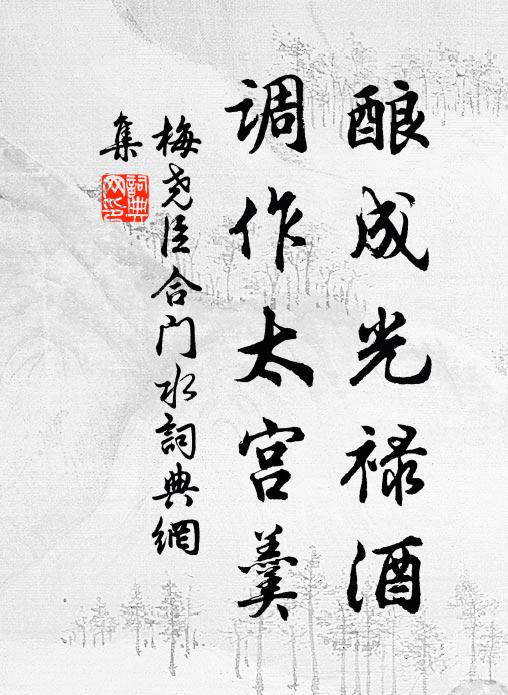 酿成光禄酒
调作太宫羹
梅尧臣合门水詞典網
集
詞典網印